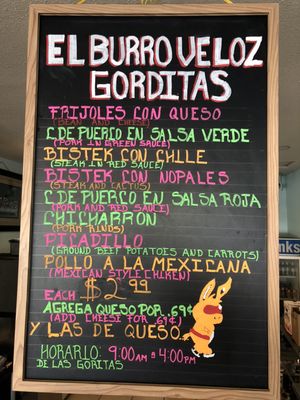 EL BURRO VELOZ
GORDITAS
FRIJOLES CON QUESO
(BEAN AND CHEESE)
C DE PUERCO EN SALSA VERDE
(PORK IN GREEN SAUCE)
BISTEK CON CHILE
(STEAK IN RED SAUCE)
BISTEK CON NOPALES
(STEAK AND CACTUS)
C DE PUERCO EN SALSA ROJA
(PORK AND RED SAUCE)
CHICHARRON
(PORK RINDS)
PICADILLO
(GROUND BEEF POTATOES AND CARROTS)
POLLO A LA MEXICANA
(MEXICAN STYLE CHICKEN)
EACH $2.99
AGREGA QUESO POR .69¢
(ADD CHEESE FOR .69¢)
Y LAS DE QUESO
HORARIO: 9:00AM a 4:00PM
DE LAS GORITAS
nks